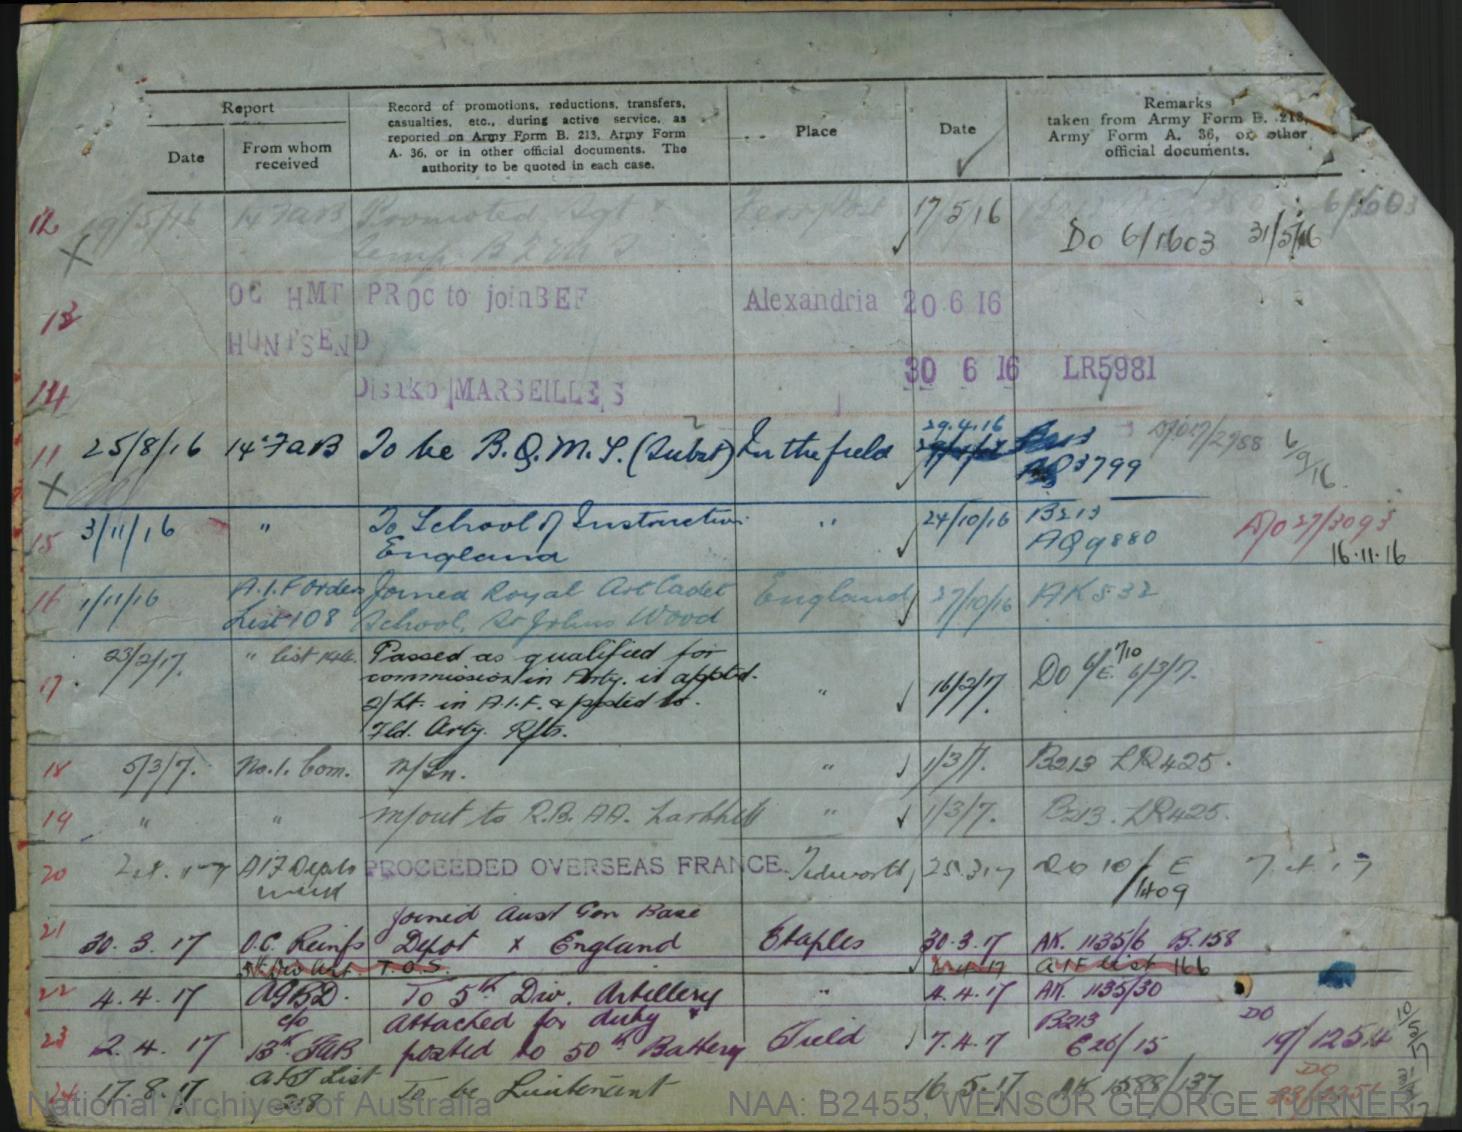 Report
Date
From whom received
Record of promotions, reductions, transfers,
casualties, etc., during active service, as
reported on Army Form B. 213, Army Form
A. 36, or in other official documents. The
authority to be quoted in each case.
Place
Date
Remarks
taken from Army Form B. 213,
Army Form A. 36, or other
official documents.
12 19/5/16 14 FAB Promoted Sgt & 17/5/16
Temp. B Q M S Do 6/1603 31/5/16
13 OC HMT PROC to join BEF Alexandria 20 6 16
HUNTSEND
14 MARSEILLES 30 6 16 LR5981
11 25/8/16 14 FAB To be B.Q.M.S. (Subst) In the field 29.4.16
AQ3799 6/9/16.
15 3/11/16 " To School of Instruction " 24/10/16 B213
England AQ9880 16.11.16
16 1/11/16 A.I.F Orders Joined Royal Art Cadet England 27/10/16 AK532
List 108 School, St Johns Wood
17 23/2/17. " list Passed as qualified for
commission in Arty. is apptd.
2/Lt. in A.I.F. & posted to " 16/2/17. Do 6/3/7.
Fld. Arty. Rfts.
18 5/3/7. No.1. Com. M/In. " 1/3/7. B213 LR425.
19 " " M/out to R.B. AA. Larkhill " 1/3/7. B213. LR425.
20 AIF Depots PROCEEDED OVERSEAS FRANCE. Tidworth 25.3.17 Do 10/1409 E 7.4.17
21 Joined Aust Gen Base
30.3.17 O.C. Reinfs Depot x England Etaples 30.3.17 AK. 1135/6 B.158
5th Div Art T.O.S. AIF List 166
22 4.4.17 AGBD. To 5th Div. Artillery " 4.4.17 AK. 1135/30
23 c/o attached for duty & B213 DO
2.4.17 13th FAB posted to 50th Battery Field 7.4.7 E26/15 19/1254 10/5/17
24 17.8.17 AIF List To be Lieutenant 16.5.17 AK 1588/137 DO
218
National Archives of Australia NAA: B2455, WENSOR GEORGE TURNER